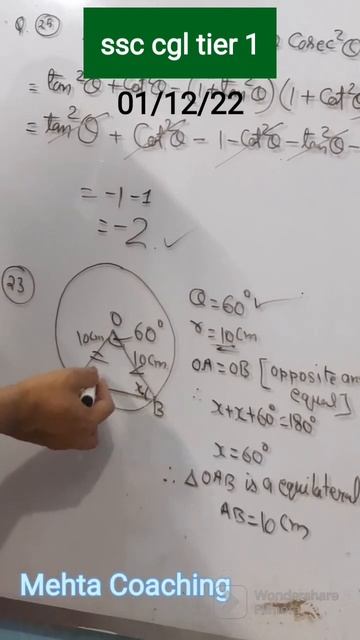 ssc cgl tier 1
01/12/22
Q. 25
Cosec²θ
= tan²θ + Cot²θ - (1 + tan²θ)(1 + Cot²θ
= tan²θ + Cot²θ - 1 - Cot²θ - tan²θ -
= -1-1
= -2
23
O
10cm
60°
10cm
x
B
θ = 60°
r = 10cm
OA = OB [opposite an
equal]
∴ x+x+60° = 180°
x = 60°
∴ △OAB is a equilateral
AB = 10cm
Mehta Coaching
Wondershare